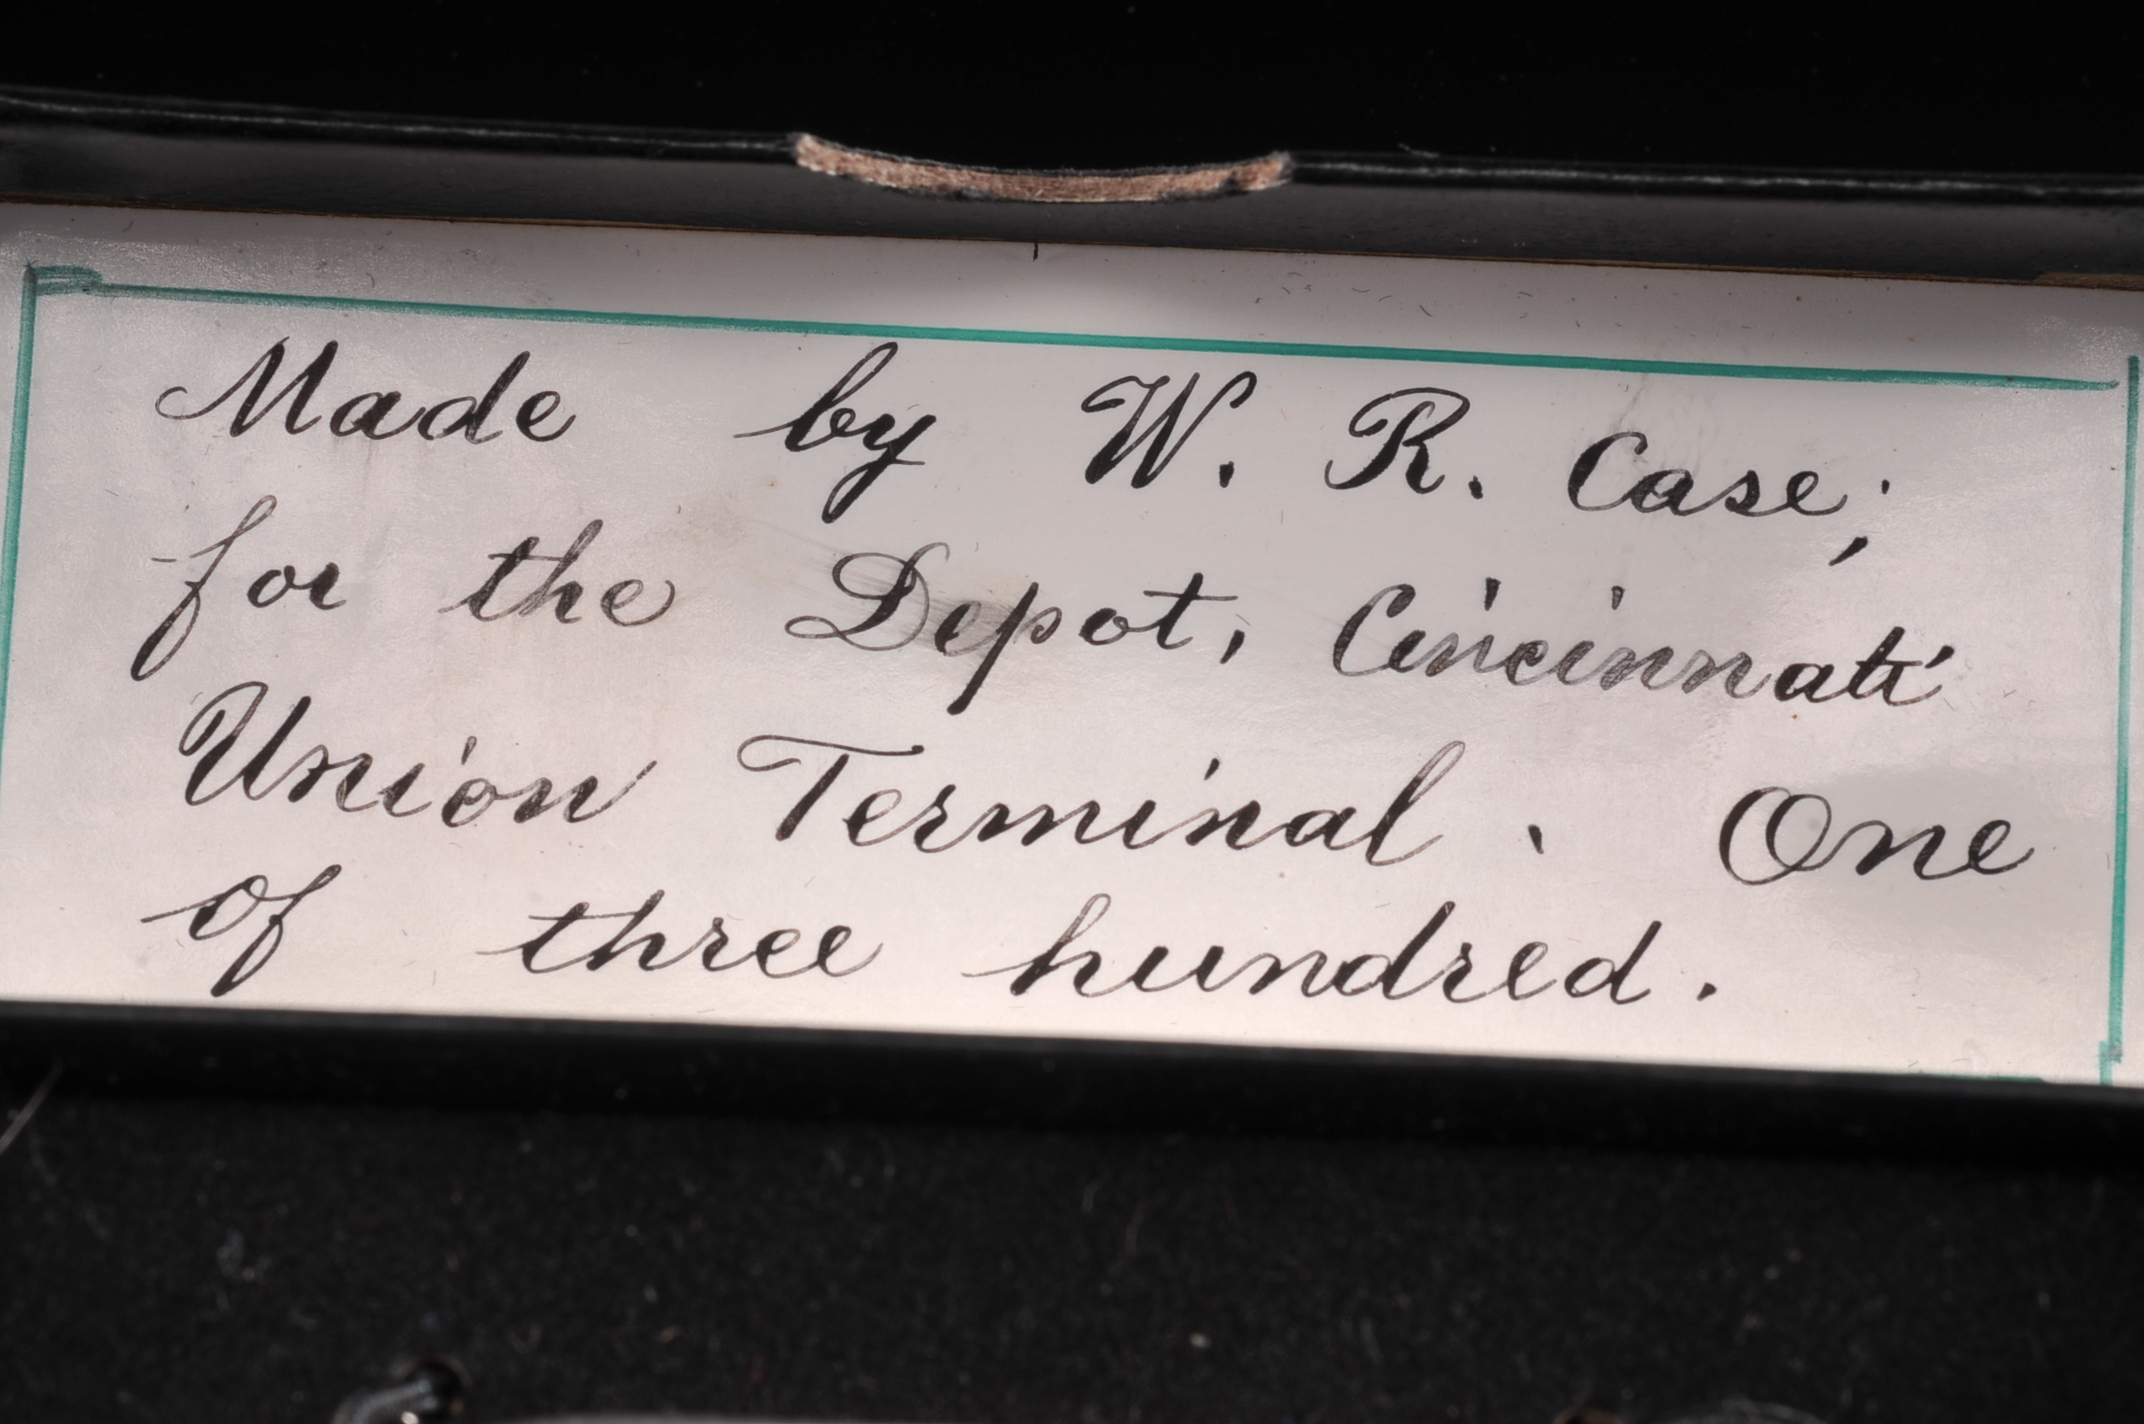 Made by W. R. Case;
for the Depot, Cincinnati
Union Terminal. One
of three hundred.